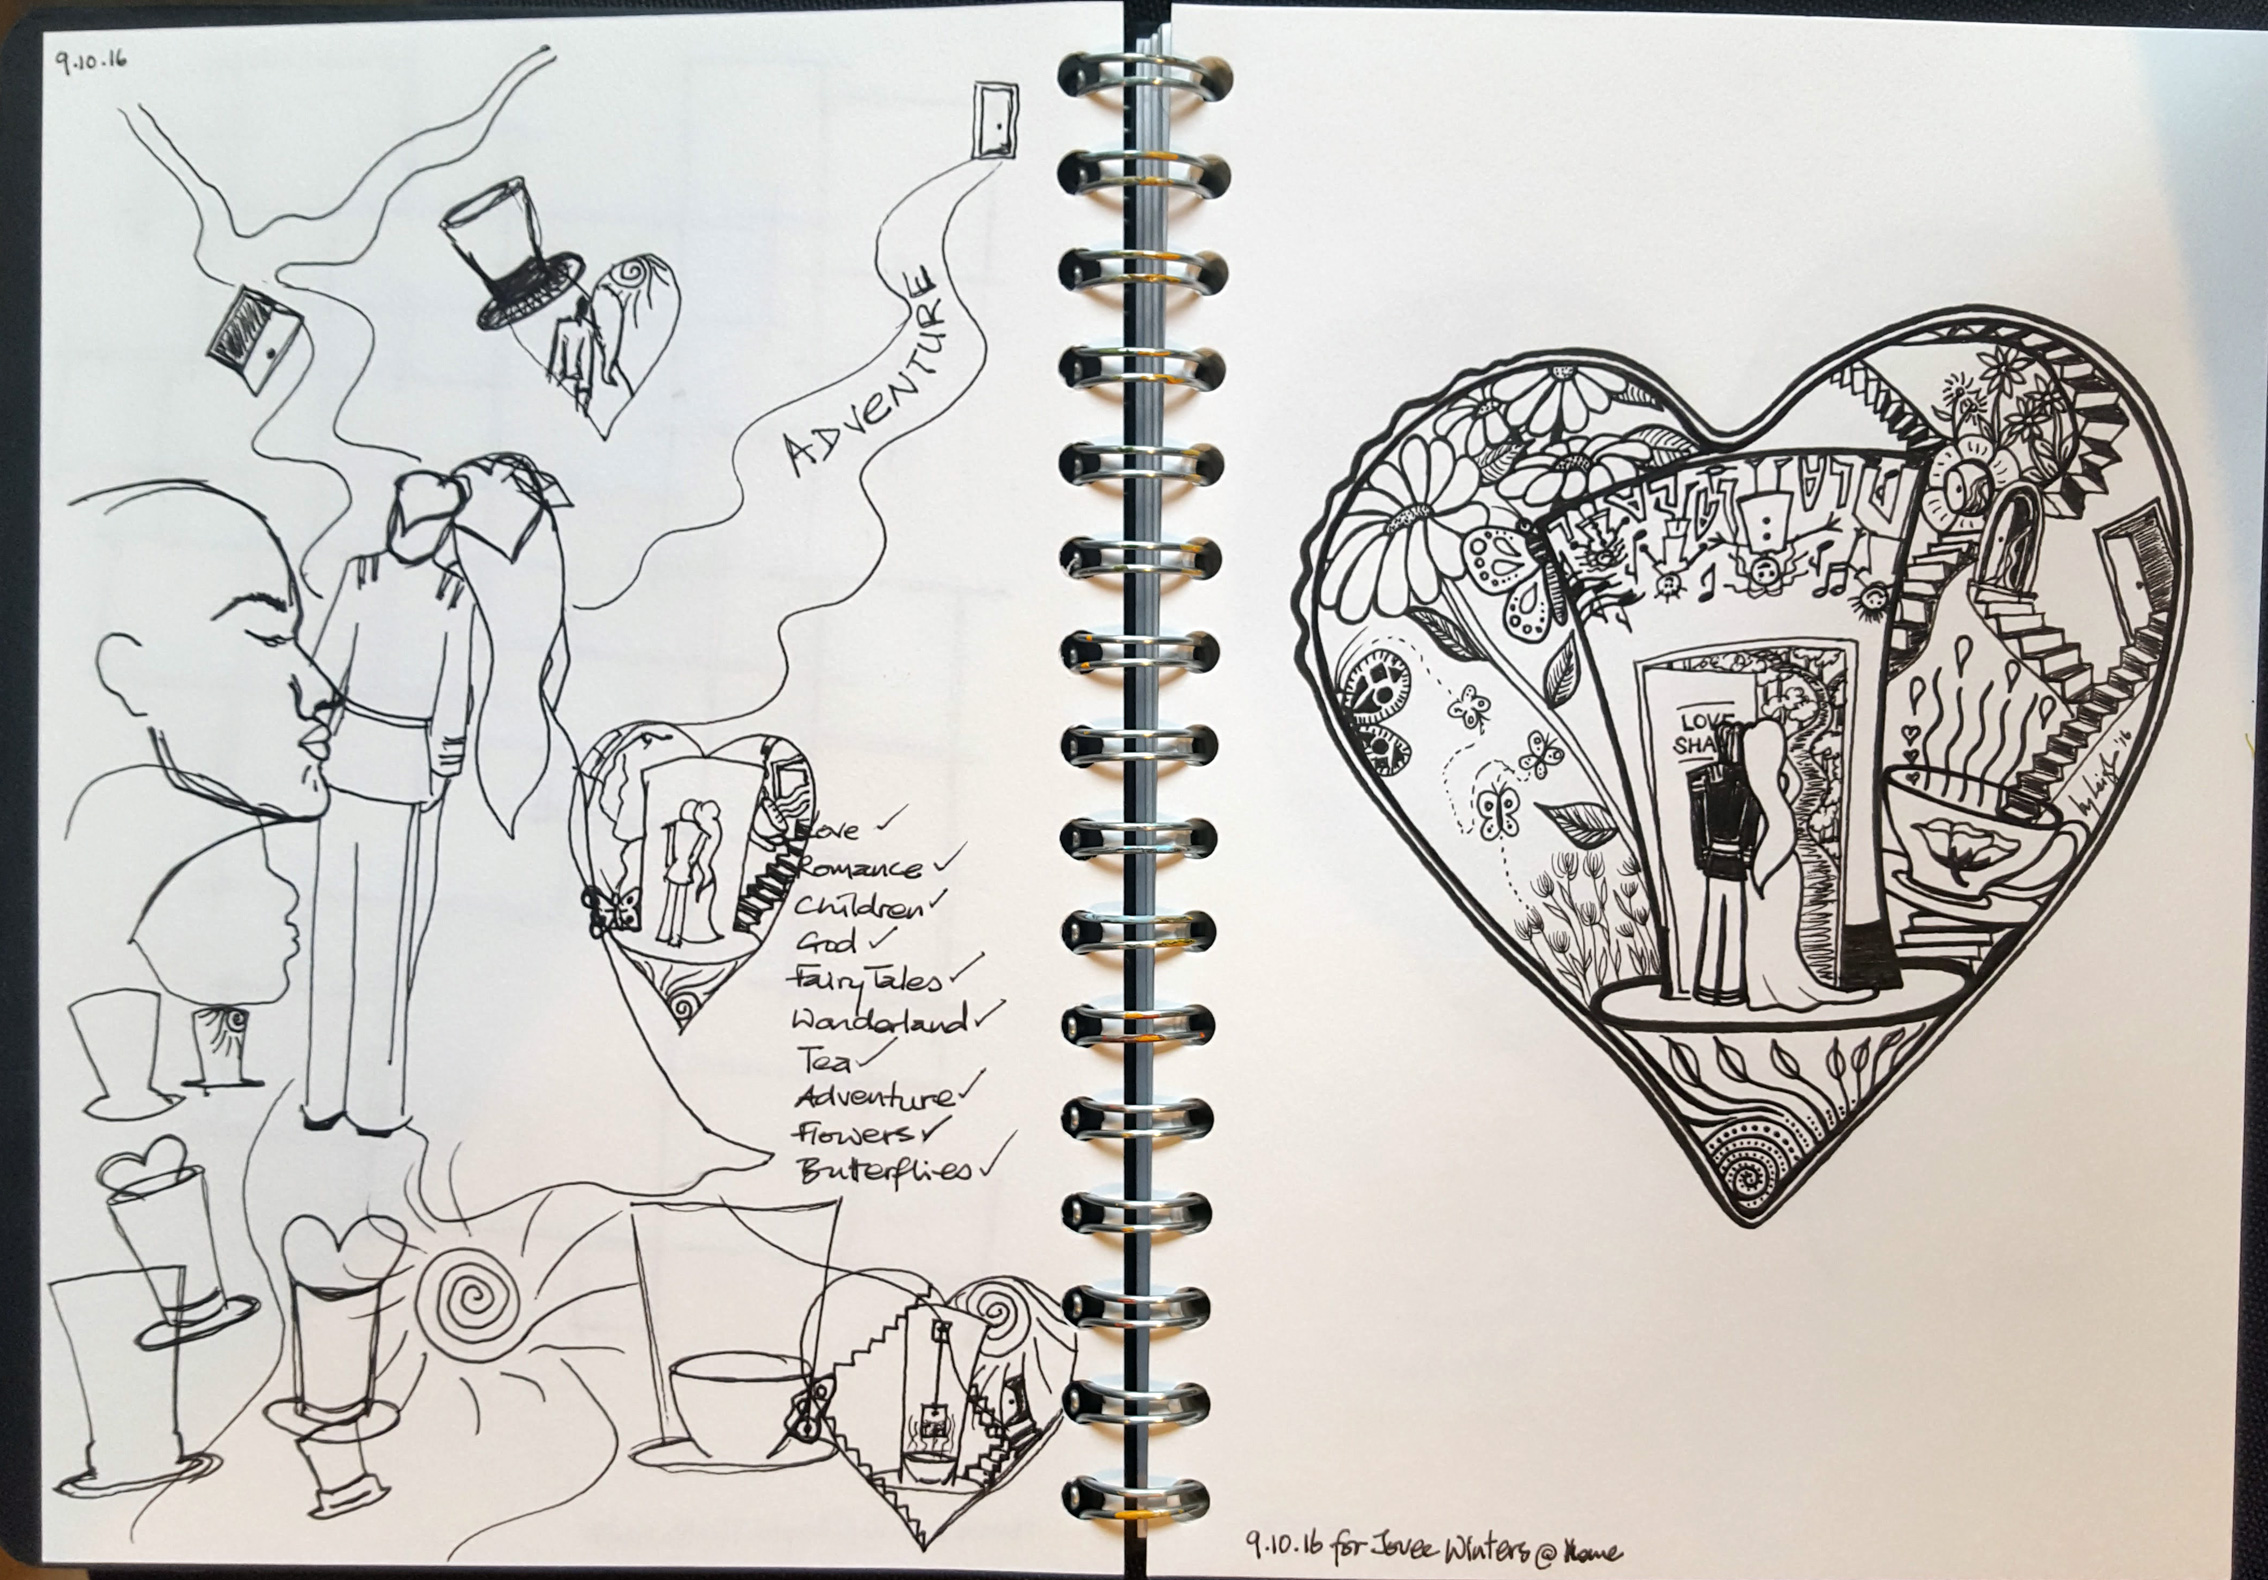 9.10.16
ADVENTURE
Love ✓
Romance ✓
Children ✓
God ✓
Fairy Tales ✓
Wonderland ✓
Tea ✓
Adventure ✓
Flowers ✓
Butterflies ✓
LOVE
SHA
'16
9.10.16 for Jovee Winters @ Home